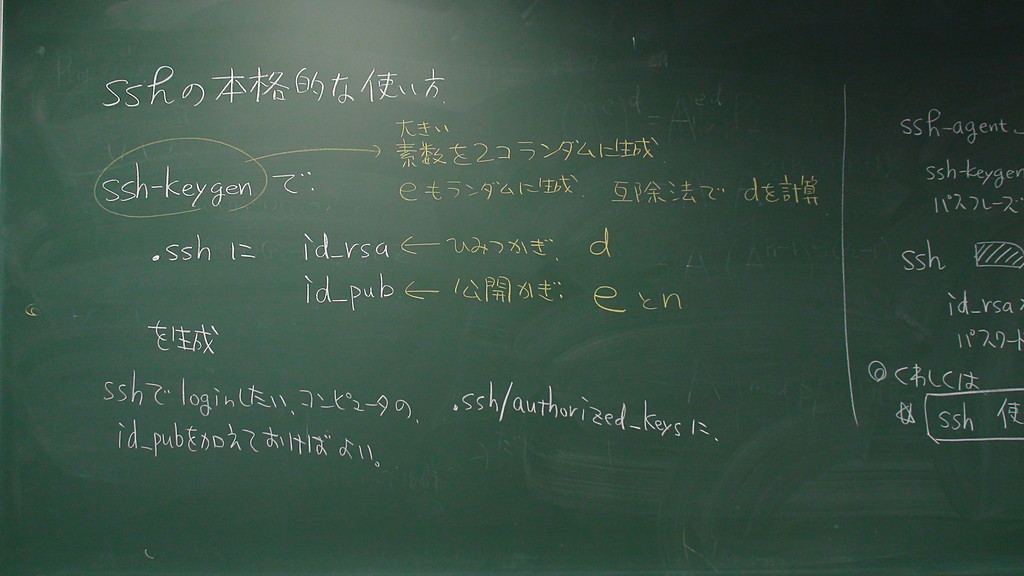 sshの本格的な使い方
大きい
素数を2コランダムに生成
ssh-keygenで:
eもランダムに生成 互除法でdを計算
.sshに id_rsa ← ひみつかぎ. d
id_pub ← 公開かぎ: eとn
を生成
sshでloginしたい、コンピュータの、 .ssh/authorized_keysに、
id_pubを加えておけばよい。
ssh-agent
ssh-keygen
パスフレーズ
ssh
id_rsa
パスワード
◎くわしくは
ssh 使